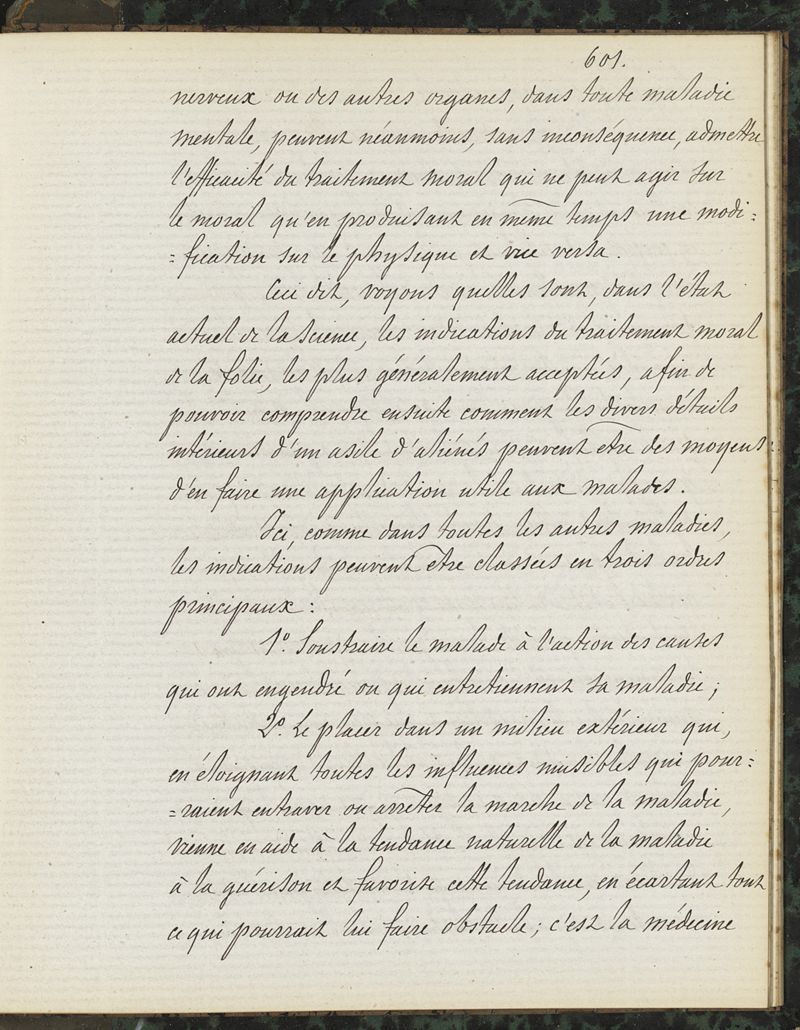 601.
nerveux ou des autres organes, dans toute maladie
mentale, peuvent néanmoins, sans inconséquence, admettre
l'efficacité du traitement moral qui ne peut agir sur
le moral qu'en produisant en même temps une modi=
=fication sur le physique et vice versa.
Ceci dit, voyons quelles sont, dans l'état
actuel de la science, les indications du traitement moral
de la folie, les plus généralement acceptées, afin de
pouvoir comprendre ensuite comment les divers détails
intérieurs d'un asile d'aliénés peuvent être des moyens
d'en faire une application utile aux malades.
Ici, comme dans toutes les autres maladies,
les indications peuvent être classées en trois ordres
principaux :
1º. Soustraire le malade à l'action des causes
qui ont engendré ou qui entretiennent sa maladie ;
2º. Le placer dans un milieu extérieur qui,
en éloignant toutes les influences nuisibles qui pour=
=raient entraver ou arrêter la marche de la maladie,
vienne en aide à la tendance naturelle de la maladie
à la guérison et favorise cette tendance, en écartant tout
ce qui pourrait lui faire obstacle ; c'est la médecine